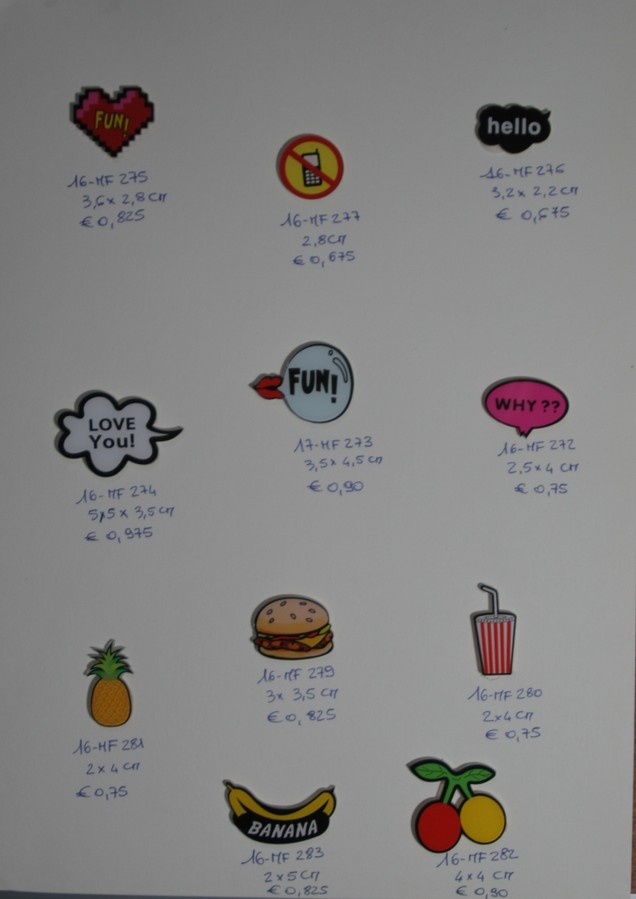 FUN!
16-MF 275
3,6 x 2,8 cm
€ 0,825
16-MF 277
2,8 cm
€ 0,675
hello
16-MF 276
3,2 x 2,2 cm
€ 0,675
LOVE
You!
16-MF 274
5,5 x 3,5 cm
€ 0,975
FUN!
17-MF 273
3,5 x 4,5 cm
€ 0,90
WHY ??
16-MF 272
2,5 x 4 cm
€ 0,75
16-MF 281
2 x 4 cm
€ 0,75
16-MF 279
3 x 3,5 cm
€ 0,825
16-MF 280
2 x 4 cm
€ 0,75
BANANA
16-MF 283
2 x 5 cm
€ 0,825
16-MF 282
4 x 4 cm
€ 0,90